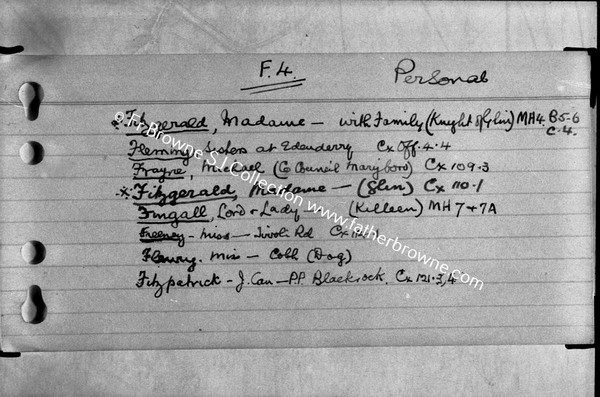 F.4. Personal
* Fitzgerald, Madame — with Family (Knight of Glin) MH4. B5-6
C.4.
Flemming Sisters at Edenderry Cx Off. 4.4
Frayne, Michael (Co Council Maryboro) Cx 109.3
* Fitzgerald, Madame — (Glin) Cx 110.1
Fingall, Lord & Lady — (Killeen) MH 7+7A
Freeney - Miss — Tivoli Rd Cx
Fleury. Miss — Cobh (Dog)
Fitzpatrick - J. Can — P.P. Blackrock. Cx 121.3,4
© Fr Browne S.J. Collection www.fatherbrowne.com